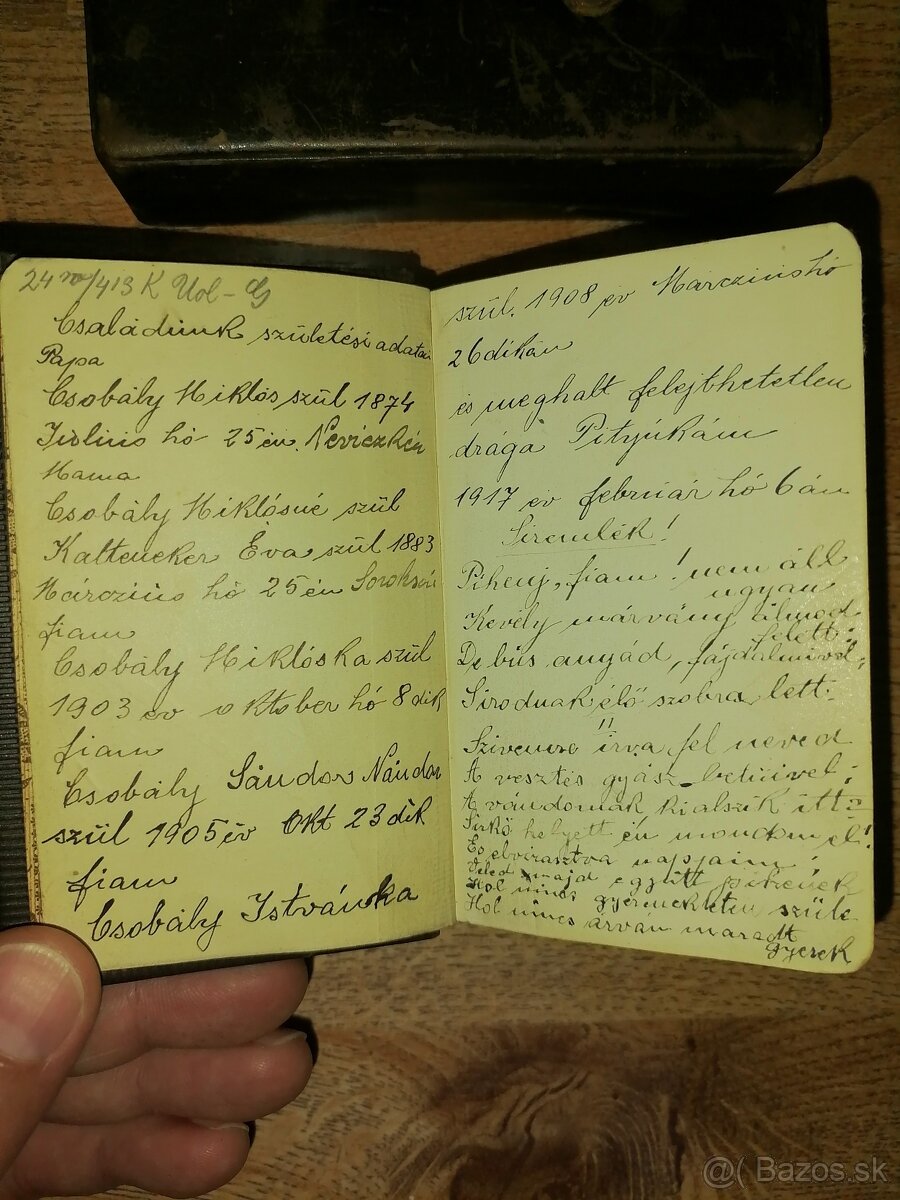 Családunk születési adata
Papa
Csobály Miklós szül 1874
Julius hó 25én. Neviczkén
Mama
Csobály Miklósné szül
Kalteneker Éva szül 1883
Márczius hó 25én Soroksári
fiam
Csobály Miklóska szül
1903 év oktober hó 8dik
fiam
Csobály Sándor Nándor
szül 1905 év Okt 23dik
fiam
Csobály Istvánka
szül. 1908 év Márczius hó
26dikán
és meghalt felejthetetlen
drága Pityúkám
1917 év február hó 6án
Siremlék!
Pihenj, fiam! nem áll
ugyan
Kevély márvány álmod
felett:
De bús anyád, fájdalmivel,
Sirodnak élő szobra lett.
Szivemre irva fel neved
A vesztés gyász betüivel;
A vándornak ki alszik itt?
Sirkő helyett én mondom el!
És elvirasztva napjaim
Veled majd együtt pihenek
Hol nincs gyermektelen szüle
Hol nincs árván maradt
gyerek
@( Bazos.sk